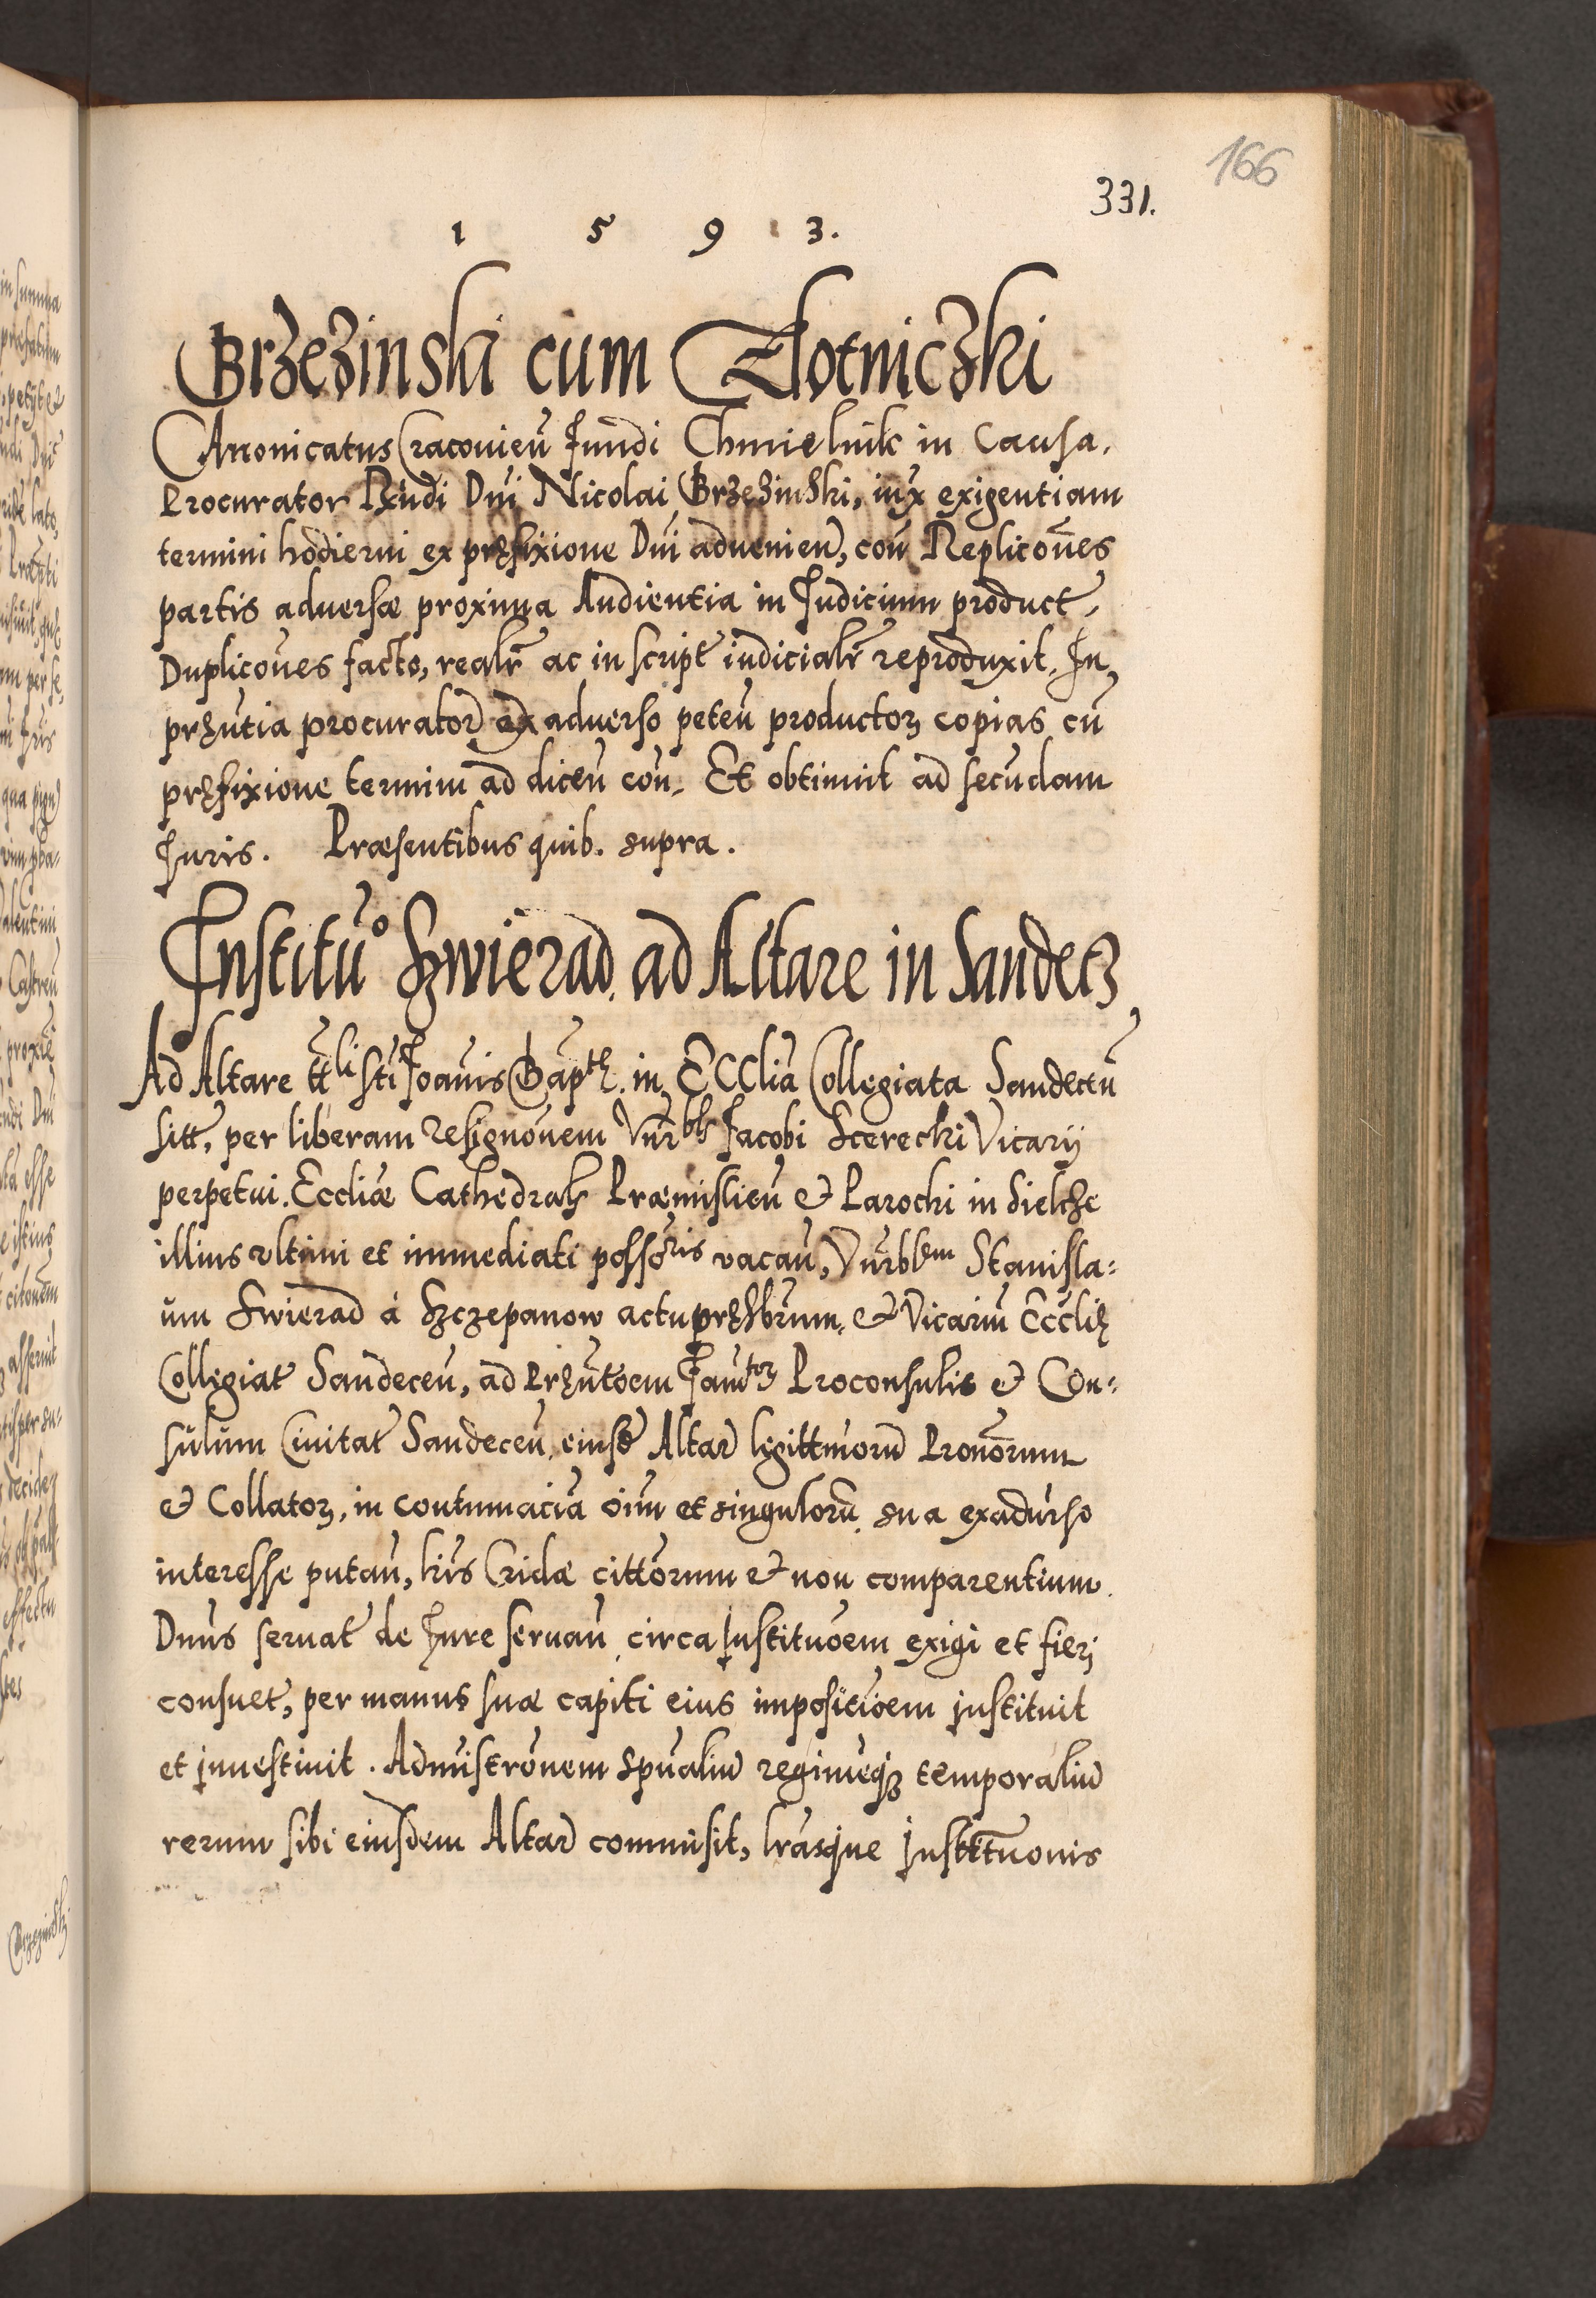 166
331.
1 5 9 3.
Brzezinski cum Zlotniczki
Canonicatus Cracovieñ fundi Chmielnik in Causa.
Procurator Rñdi Dñi Nicolai Brzezinski, iux exigentiam
termini hodierni ex pręfixione Dñi advenień, coñ Replicoñes
partis adversæ proxima Audientia in Judicium product,
Duplicoñes facto, realr̃ ac in script iudicialr̃ reproduxit. In
pręñtia procurator ex adverso peteñ productorꝫ copias cũ
pręfixione termini ad diceñ coñ. Et obtinuit ad secũdam
Juris. Præsentibus quib. supra.
Institũo Szwierad. ad Altare in Sandecz
Ad Altare ttli sti Joañis Bapt. in Eccliã Collegiata Sandeceñ
sitt, per liberam resignõnem Vñrblis Jacobi Scerecki Vicarij
perpetui Eccliæ Cathedralis Præmislieñ & Parochi in Sielcze
illius ultimi et immediati possõris vacañ, Vñrblem Stanisla=
um Swierad á Szczepanow actu pręsbrũm, & Vicariũ Ecclię
Collegiat Sandeceñ, ad Pręñtõem Famtorꝫ Proconsulis & Con=
sulum Civitat Sandeceñ, eiusđ Altar legittimorũ Pronõrum
& Collatorꝫ, in contumacia oĩm et singulorũ sua exadũrso
interesse putañ, lris Cridæ cittõrum & non comparentium.
Dnus servat de Jure servañ circa Institũõem exigi et fieri
consuet, per manus suæ capiti eius imposicĩõem instituit
et investivit. Admĩstrõnem spũaliũ regimẽqꝫ temporaliũ
rerum sibi eiusdem Altar commisit, lrãsque Institũonis